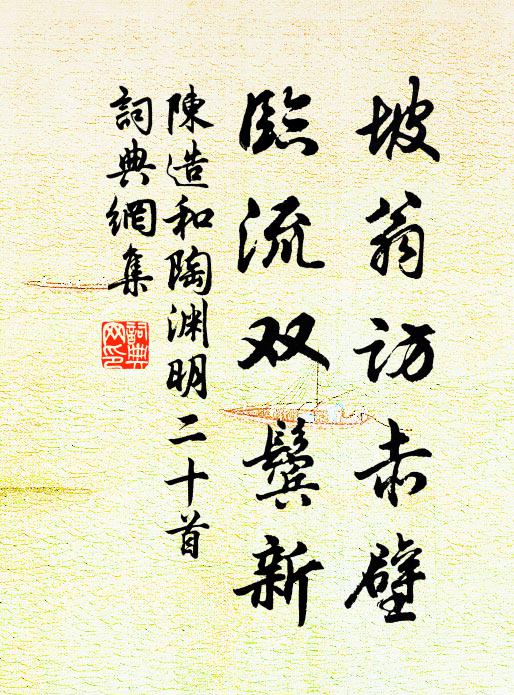 坡翁訪赤壁
臨流双鬓新
陳造和陶渊明二十首
詞典網集
詞典网印